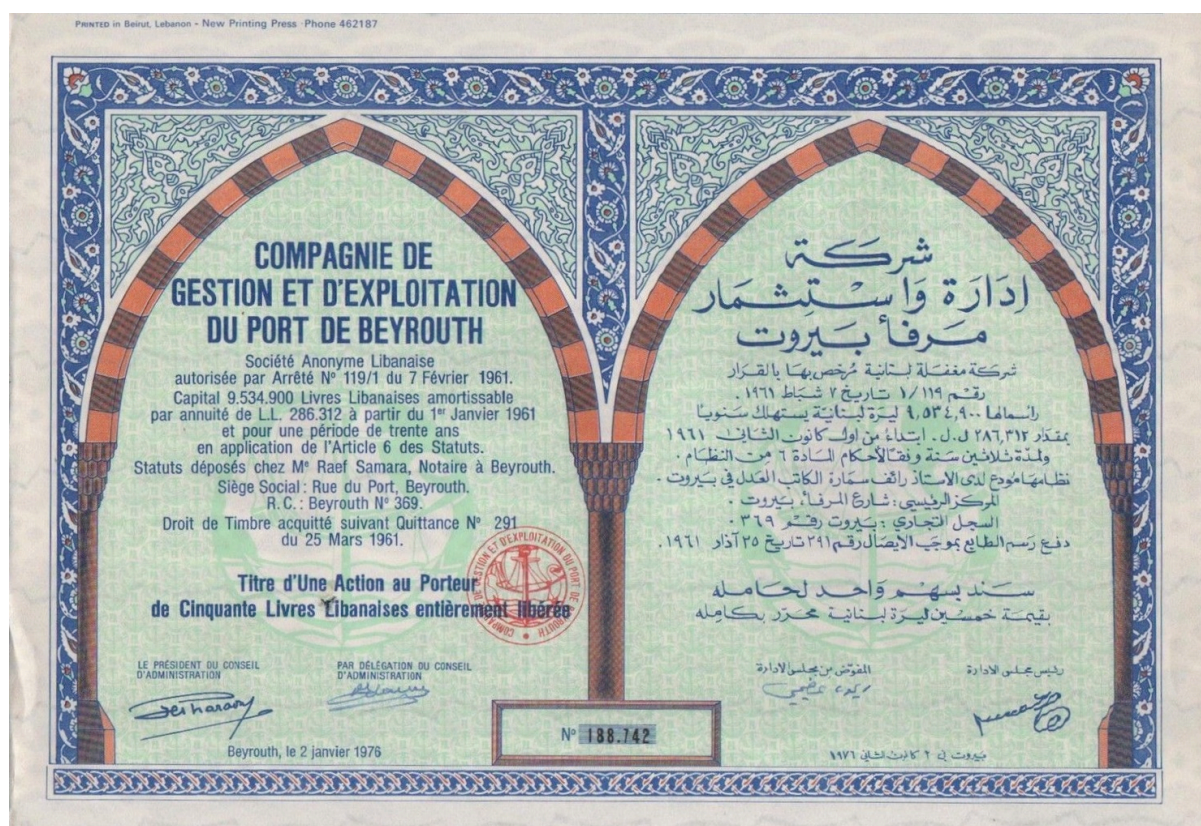 PRINTED in Beirut, Lebanon - New Printing Press Phone 462187
COMPAGNIE DE
GESTION ET D'EXPLOITATION
DU PORT DE BEYROUTH
Société Anonyme Libanaise
autorisée par Arrêté Nº 119/1 du 7 Février 1961.
Capital 9.534.900 Livres Libanaises amortissable
par annuité de L.L. 286.312 à partir du 1er Janvier 1961
et pour une période de trente ans
en application de l'Article 6 des Statuts.
Statuts déposés chez Me Raef Samara, Notaire à Beyrouth.
Siège Social : Rue du Port, Beyrouth.
R.C. : Beyrouth Nº 369.
Droit de Timbre acquitté suivant Quittance Nº 291
du 25 Mars 1961.
Titre d'Une Action au Porteur
de Cinquante Livres Libanaises entièrement libérée
COMPAGNIE DE GESTION ET D'EXPLOITATION DU PORT DE BEYROUTH
LE PRÉSIDENT DU CONSEIL
D'ADMINISTRATION
PAR DÉLÉGATION DU CONSEIL
D'ADMINISTRATION
Beyrouth, le 2 janvier 1976
شركة
إدارة واستثمار
مرفأ بيروت
شركة مغفلة لبنانية مرخص بها بالقرار
رقم ١/١١٩ تاريخ ٧ شباط ١٩٦١.
رأسمالها ٩,٥٣٤,٩٠٠ ليرة لبنانية يستهلك سنويا
بمقدار ٢٨٦,٣١٢ ل.ل. ابتداء من اول كانون الثاني ١٩٦١
ولمدة ثلاثين سنة وفقا لأحكام المادة ٦ من النظام.
نظامها مودع لدى الاستاذ رائف سمارة الكاتب العدل في بيروت.
المركز الرئيسي: شارع المرفأ، بيروت.
السجل التجاري: بيروت رقم ٣٦٩.
دفع رسم الطابع بموجب الايصال رقم ٢٩١ تاريخ ٢٥ آذار ١٩٦١.
سند بسهم واحد لحامله
بقيمة خمسين ليرة لبنانية محرر بكامله
رئيس مجلس الادارة
المفوض من مجلس الادارة
بيروت في ٢ كانون الثاني ١٩٧٦
Nº 188.742